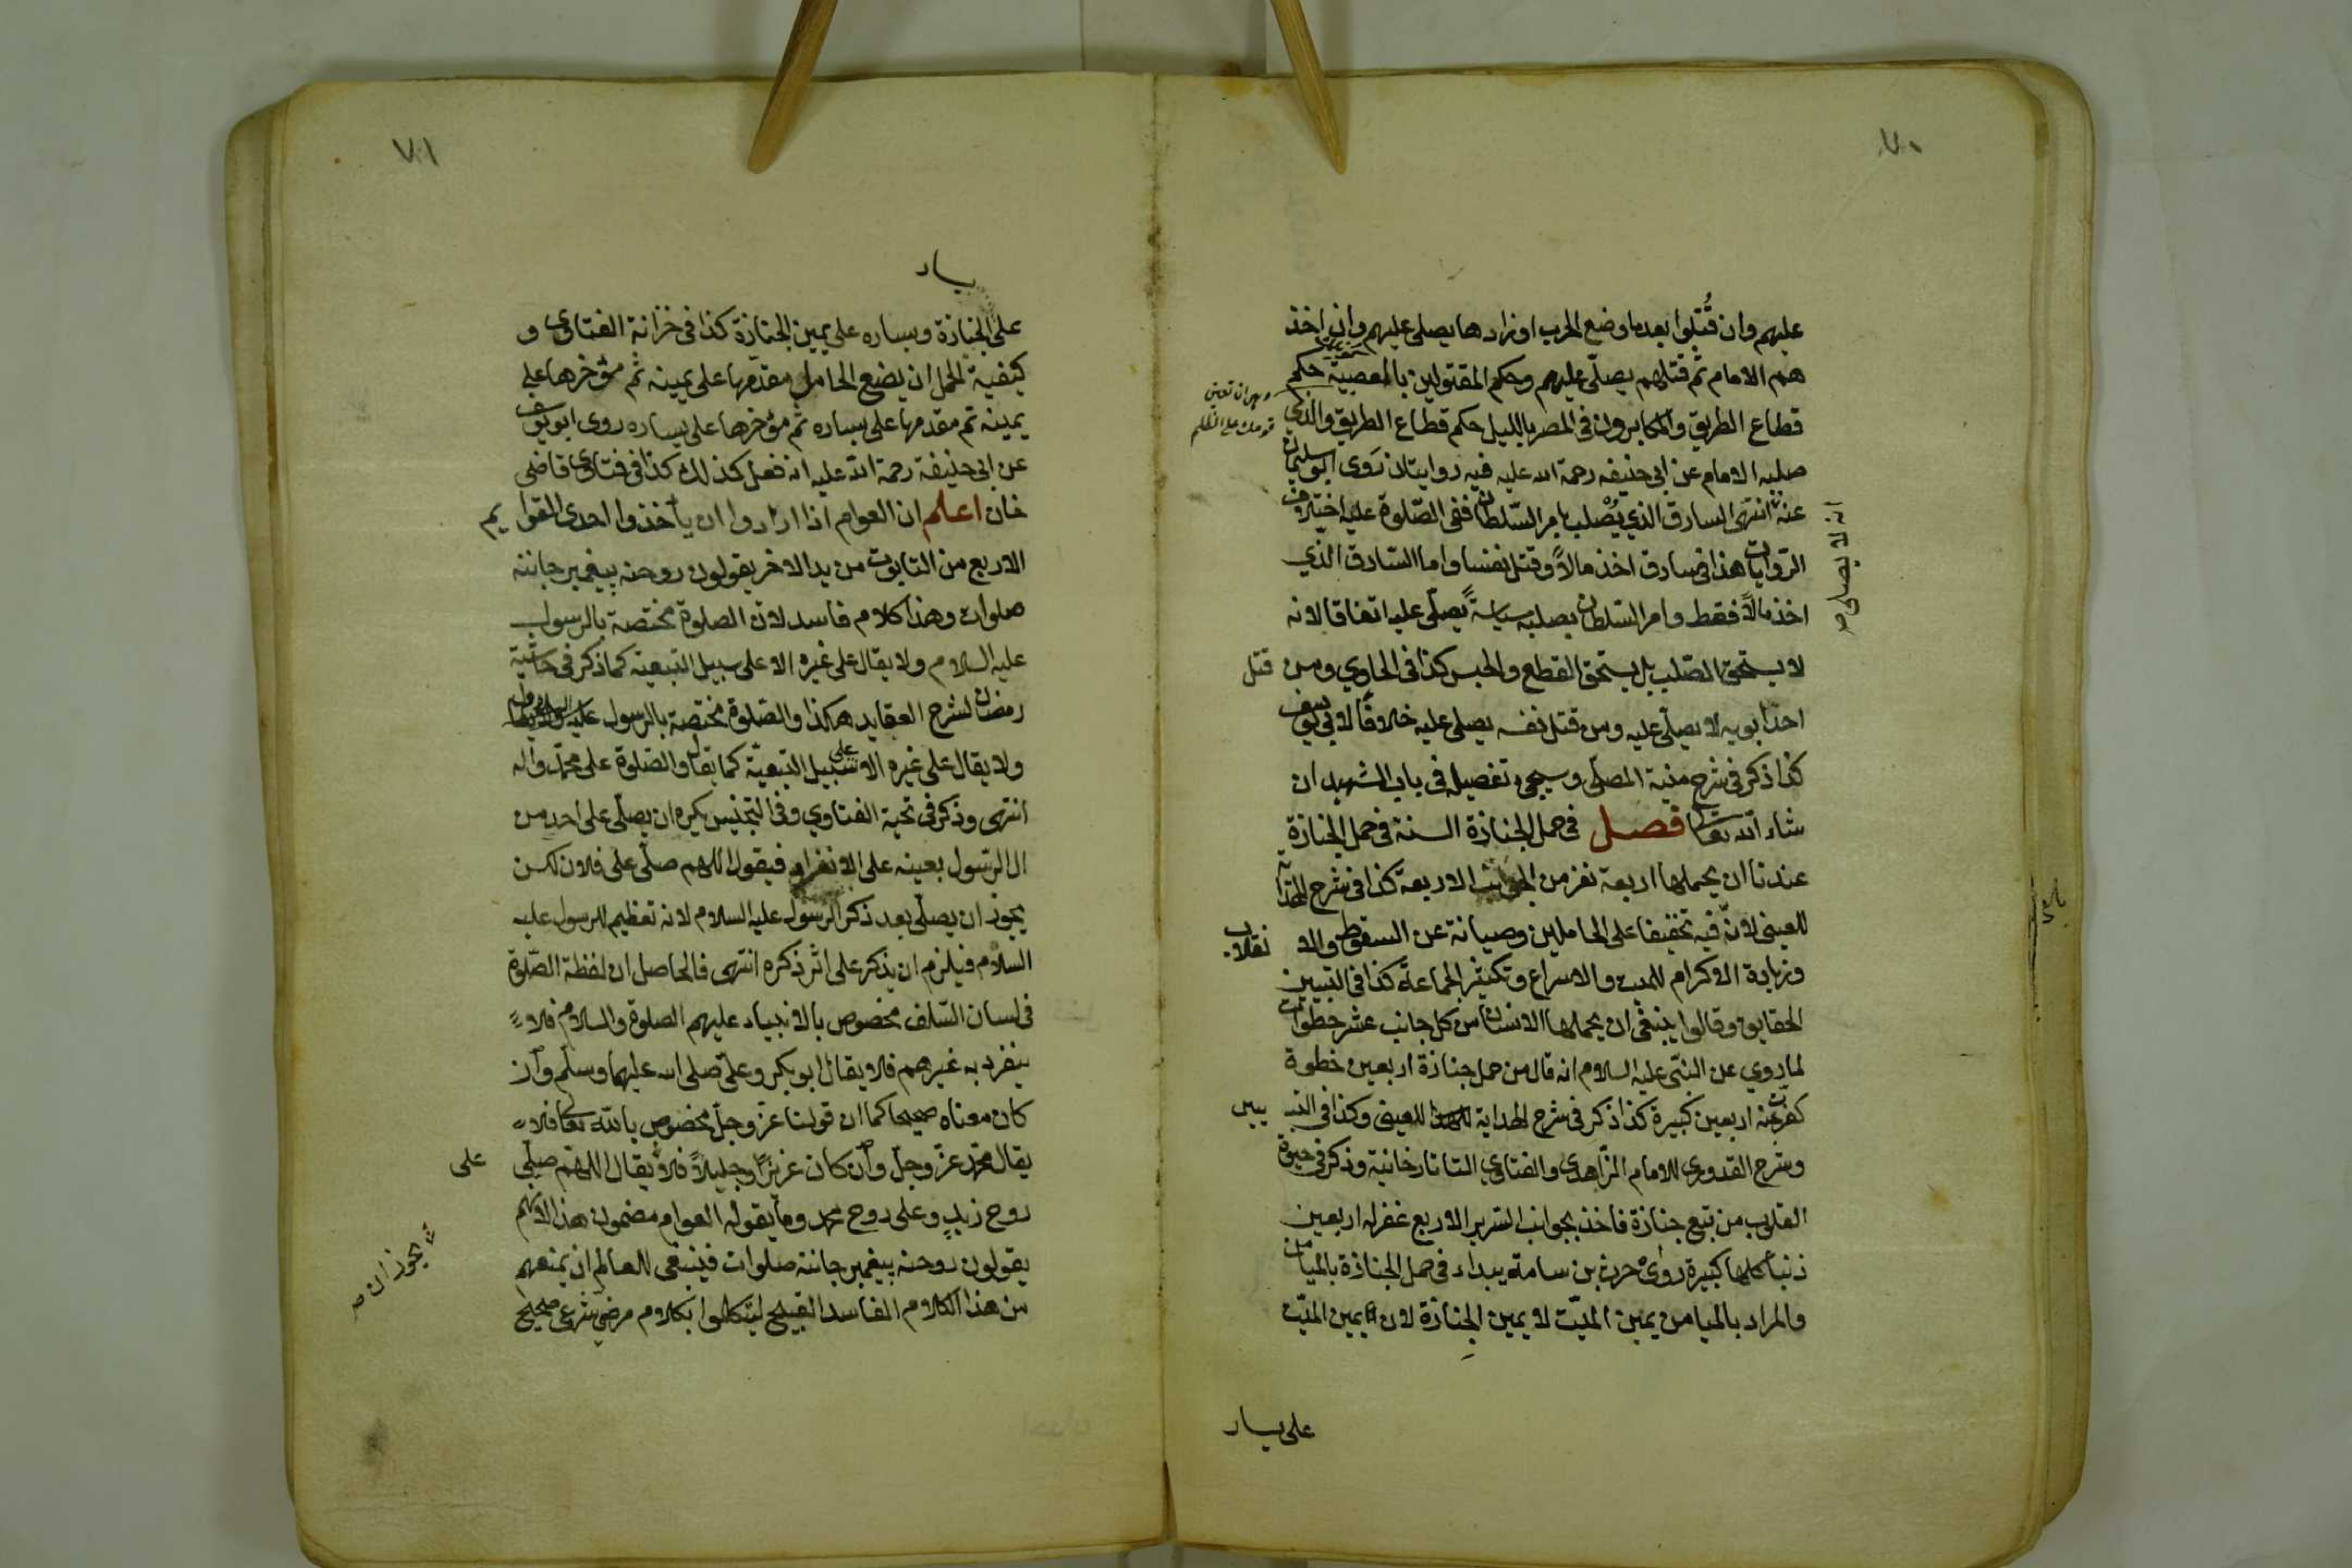 ٧٠
عليهم وان قُتلوا بعدما وضع الحرب اوزارها يصلى عليهم وان اخذ
هم الامام ثم قتلهم يصلّى عليهم وحكم المقتولين بالعصبية حكم
قطاع الطريق والمكابرون فى المصر بالليل حكم قطاع الطريق والذي
صلبه الامام عن ابى حنيفه رحمة الله عليه فيه روايتان رَوى ابو سليمان
عنه انه لا يصلى
انتهى السارق الذي يُصْلب بامر السّلطان ففى الصّلوة عليه اختلاف
الروايات هذا فى سارق اخذ مالاً وقتل نفسا واما السّارق الذي
اخذ مالاً فقط وامر السّلطان بصلبه سياسةً يصلّى عليه اتفاقا لانه
لا يستحق الصّلب بل يستحق القطع والحبس كذا فى الحاوي ومن قتل
احد ابويه لا يصلّى عليه ومن قتل نفسه يصلى عليه خلافًا لابى يوسف
كذا ذكر فى شرح منية المصلّى وسيجئ تفصيله فى باب الشهيد ان
شاء الله تعالى فصل فى حمل الجنازة السنة فى حمل الجنازة
عندنا ان يحملها اربعة نفر من الجوانب الاربعة كذا فى شرح الهداية
للعينى لانّ فيه تخفيفا على الحاملين وصيانة عن السقوط والا نقلاب
وزيادة الاكرام للميت والاسراع وتكثير الجماعة كذا فى التبيين
الحقايق وقالوا ينبغى ان يحملها الانسان من كل جانب عشر خطوات
لما روي عن النّبى عليه السلام انه قال من حمل جنازة اربعين خطوة
كفرت عنه اربعين كبيرة كذا ذكر فى شرح الهداية للعينى وكذا فى التبـ يين
وشرح القدورى للامام الزّاهدى والفتاوى التاتارخانية وذكر فى حيوة
القلوب من تبع جنازة فاخذ بجوانب السّرير الاربع غفر له اربعين
ذنبا كلها كبيرة روىٰ حرث بن سامة يبداء فى حمل الجنازة بالميامن
والمراد بالميامن يمين الميّت لا يمين الجنازة لان يمين الميّت
على يسار
٧١
يسار
على الجنازة ويساره على يمين الجنازة كذا فى خزانة الفتاوى و
كيفية الحمل ان يضع الحامل مقدّمها على يمينه ثم مؤخرها على
يمينه ثم مقدمها على يساره ثم مؤخرها على يساره روى ابو يوسف
عن ابى حنيفة رحمة الله عليه انه فعل كذلك كذا فى فتاوى قاضى
خان اعلم ان العوام اذا ارادوا ان يأخذوا احدى القوا يم
الاربع من التابوت من يد الاخر يقولون روحنه پيغمبر جاننه
صلوات وهذا كلام فاسد لان الصلوة مختصة بالرسول
عليه السلام ولا يقال على غيره الا على سبيل التبعية كما ذكر فى حاشية
رمضان لشرح العقايد هكذا والصّلوة مختصة بالرسول عليه السلام
ولا يقال على غيره الا على سبيل التبعيّة كما يقال والصّلوة على محمّد واله
انتهى وذكر فى تحية الفتاوي وفى التجنيس يكره ان يصلّى على احد من
ال الرّسول بعينه على الانفراد فيقول اللهم صلّى على فلان لكن
يجوز ان يصلّى بعد ذكر الرسول عليه السلام لانه تعظيم للرسول عليه
السلام فيلزم ان يذكر على اثر ذكره انتهى فالحاصل ان لفظة الصّلوة
فى لسان السّلف مخصوص بالانبياء عليهم الصلوة والسلام فلا
ينفرد به غيرهم فلا يقال ابو بكر وعلى صلى الله عليهما وسلّم وان
كان معناه صحيحا كما ان قولنا عزّ وجلّ مخصوص بالله تعالى فلا
يقال محمّد عزّ وجلّ وان كان عزيزًا وجليلاً فلا يجوز ان يقال اللهم صلّى على
روح زيدٍ وعلى روح محمد وما يقوله العوام مضمون هذا لانّهم
يقولون روحنه پيغمبر جاننه صلوات فينبغى للعالم ان يمنعهم
من هذا الكلام الفاسد القبيح ليتكلموا بكلام مرضي شرعى صحيح